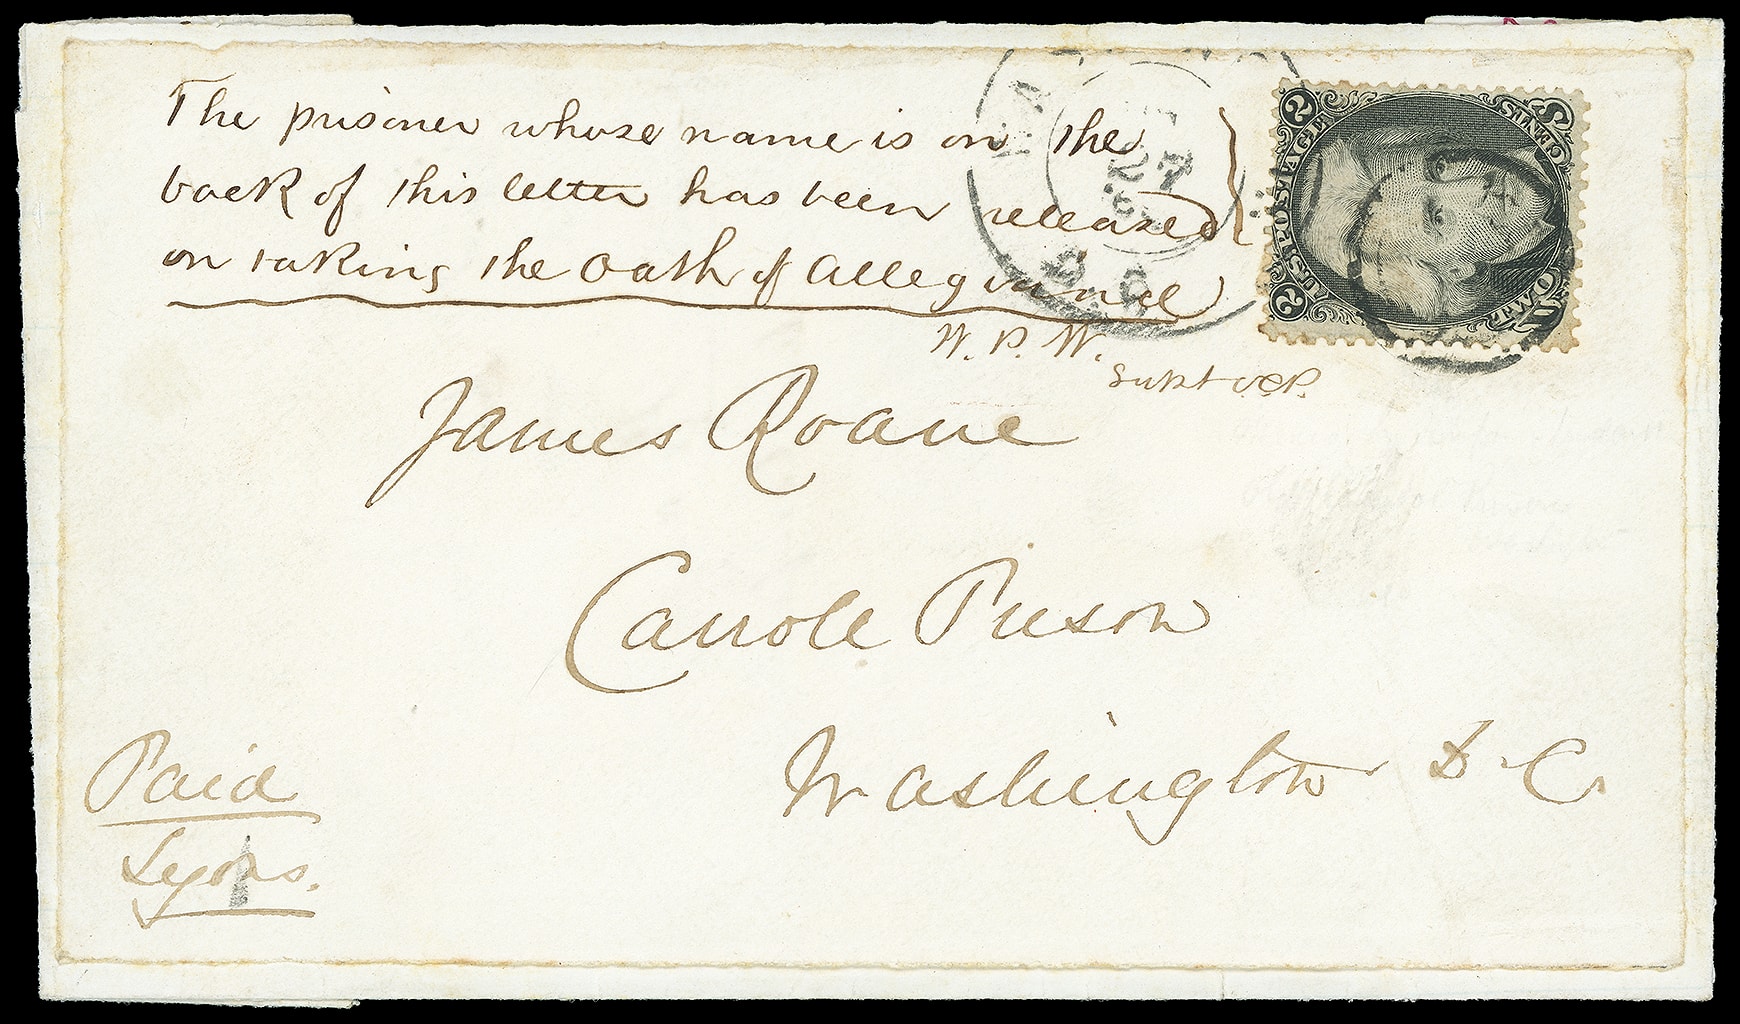 The prisoner whose name is on the
back of this letter has been released
on taking the Oath of Allegiance
W. P. W.
Supt O.C.P.
James Roane
Carrole Prison
Washington D. C.
Paid
Lyons.
U.S. POSTAGE
2 2
TWO CENTS